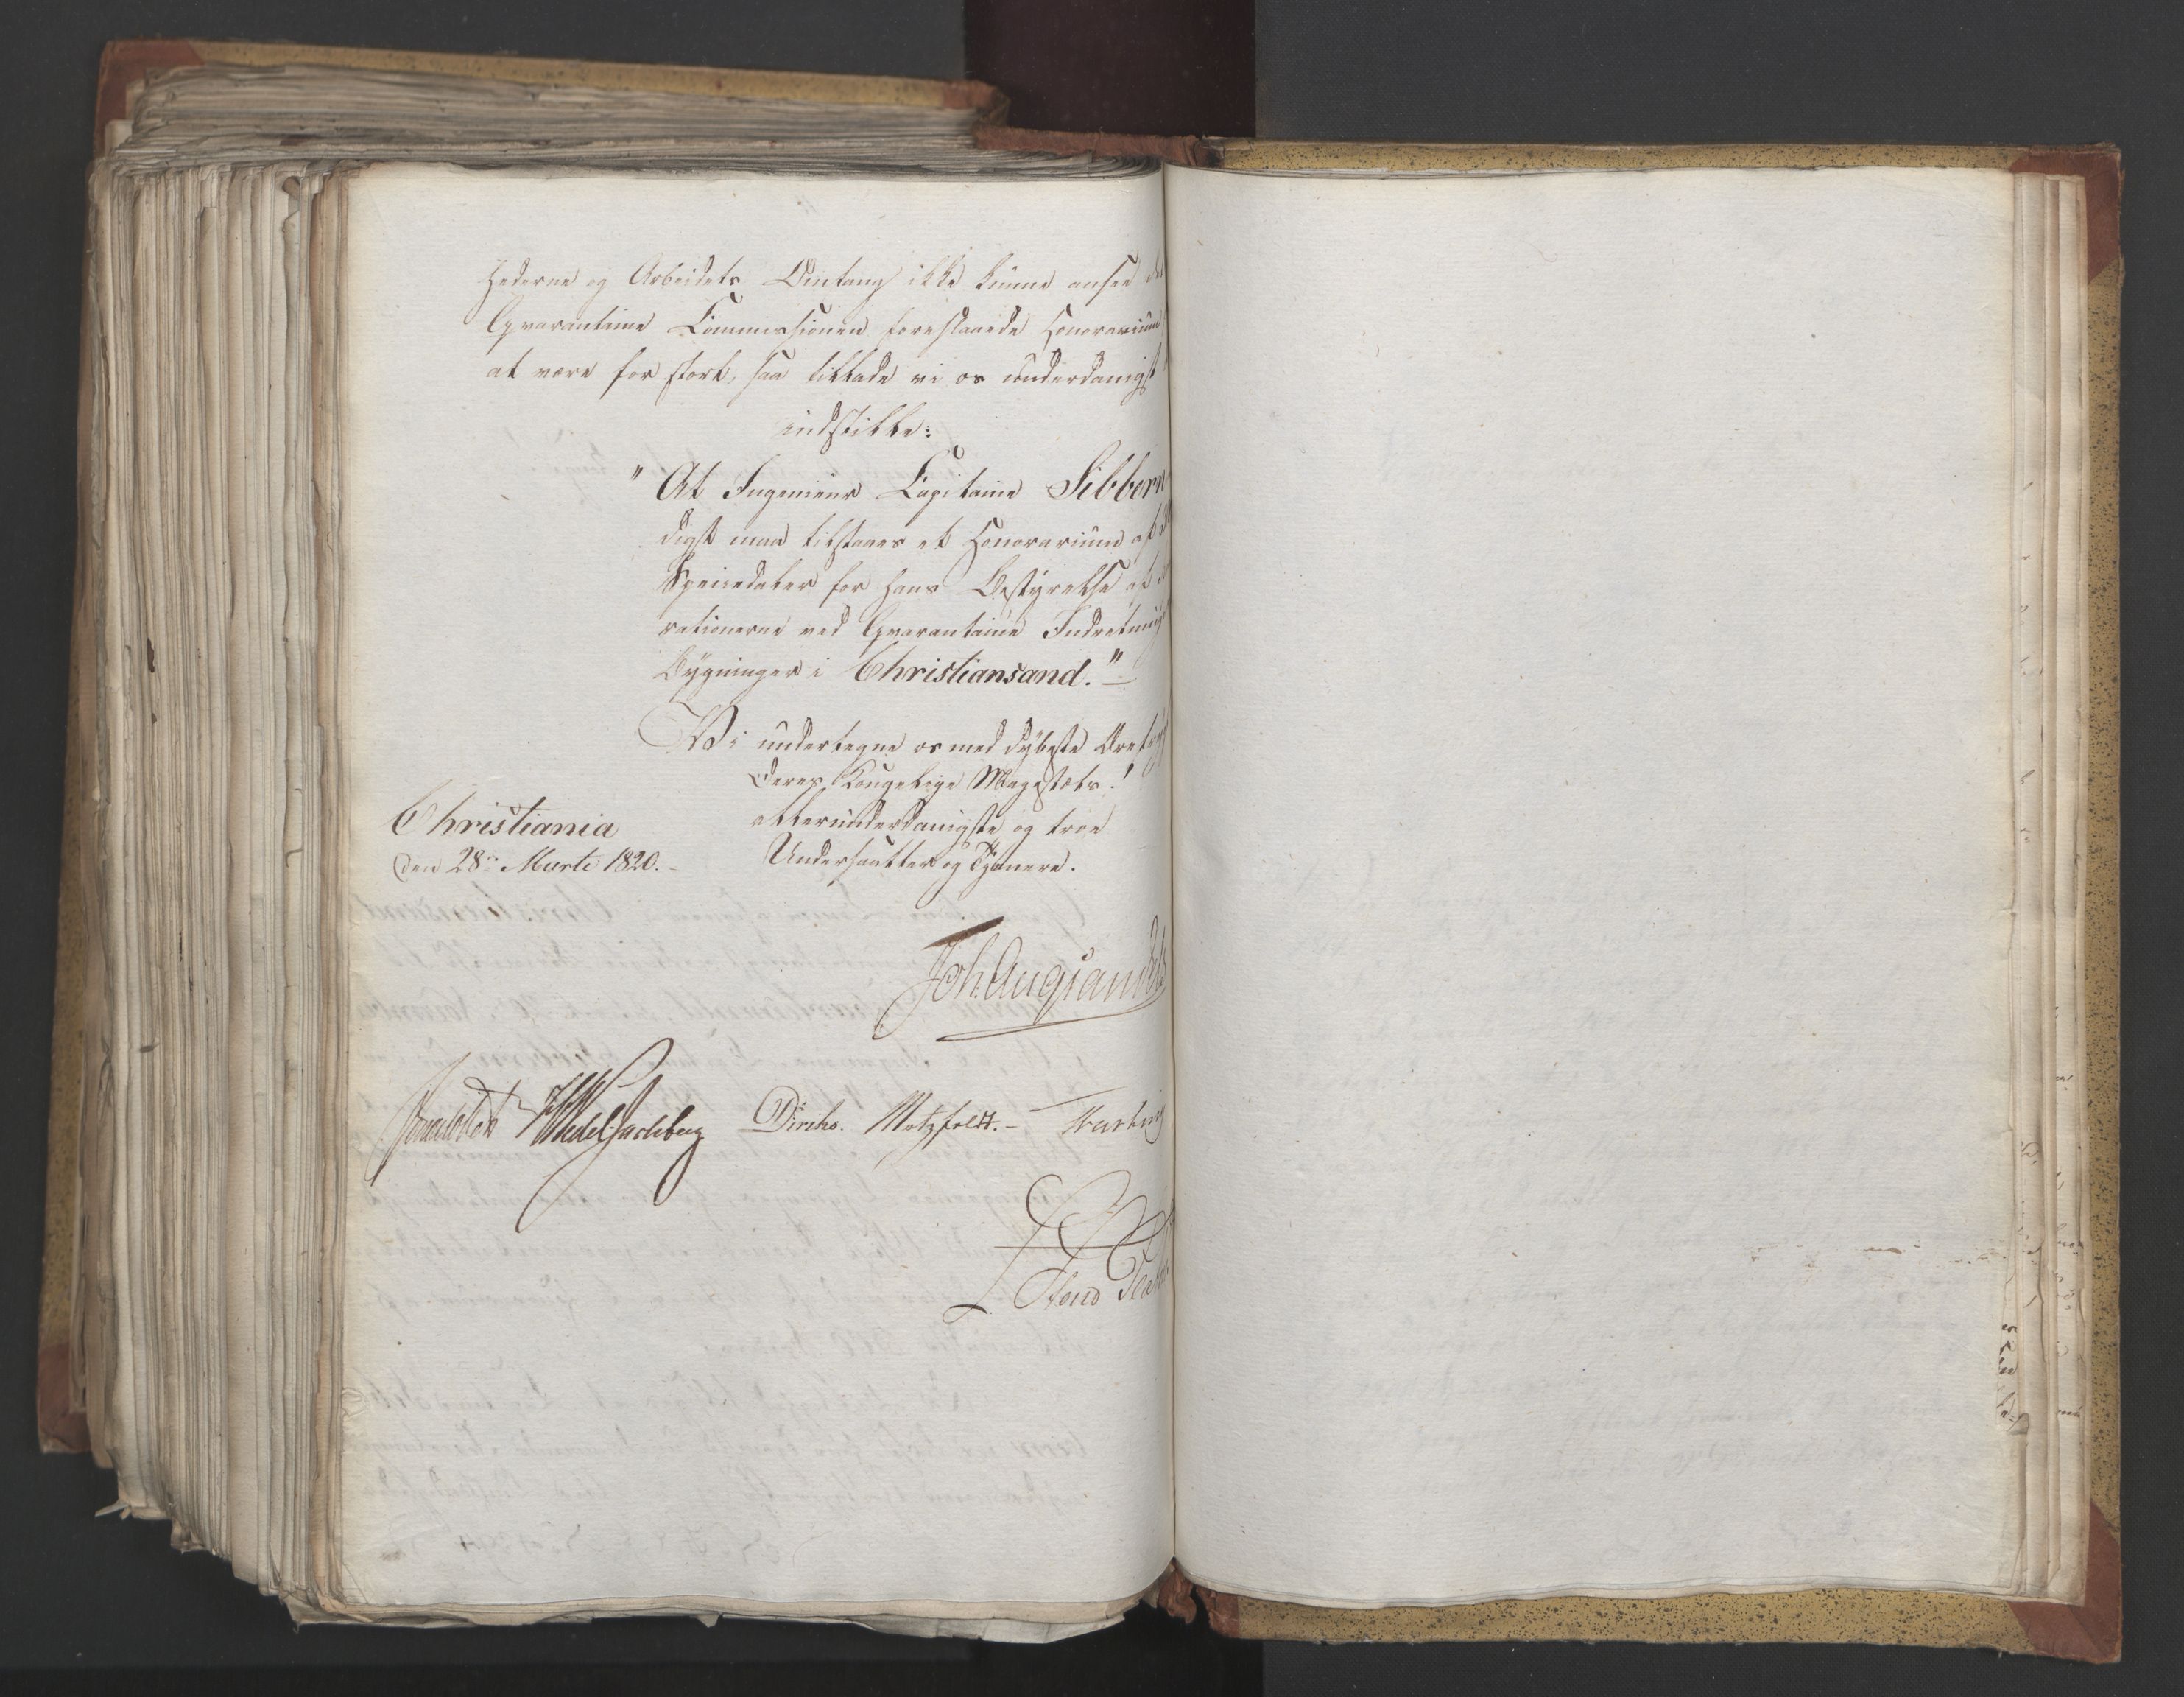 hederne og Arbeidets Omfang ikke kunne ansee
Qvarantaine Commissionen foreslaaede Honorarium
at være for stort, saa tillade vi os underdanigst
indstille:
"At Ingenieur Capitaine Sibbern
digst maa tilstaaes et Honorarium af
Speciedaler for hans Bestyrelse af
rationerne ved Qvarantaine Indretnings
Bygninger i Christiansand."
Vi undertegne os med dybeste Ærefrygt
Deres Kongelige Majestæts!
allerunderdanigste og troe
Undersaatter og Tjenere.
Christiania
den 28de Marti 1820.
Joh. Aug. Sandels
HWedelJarlsberg Diriks. Motzfeldt.